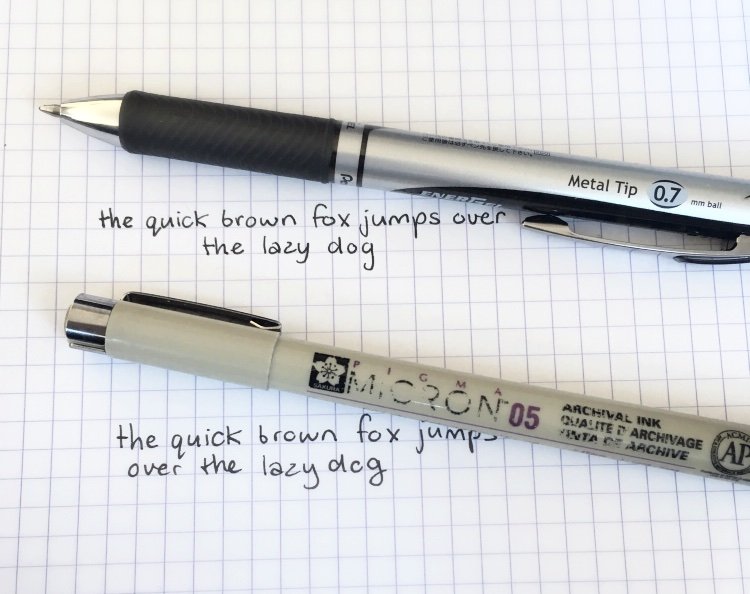 Metal Tip 0.7 mm ball
the quick brown fox jumps over
the lazy dog
SAKURA
PIGMA
MICRON 05
ARCHIVAL INK
QUALITE D'ARCHIVAGE
TINTA DE ARCHIVE
AP
the quick brown fox jumps
over the lazy dog